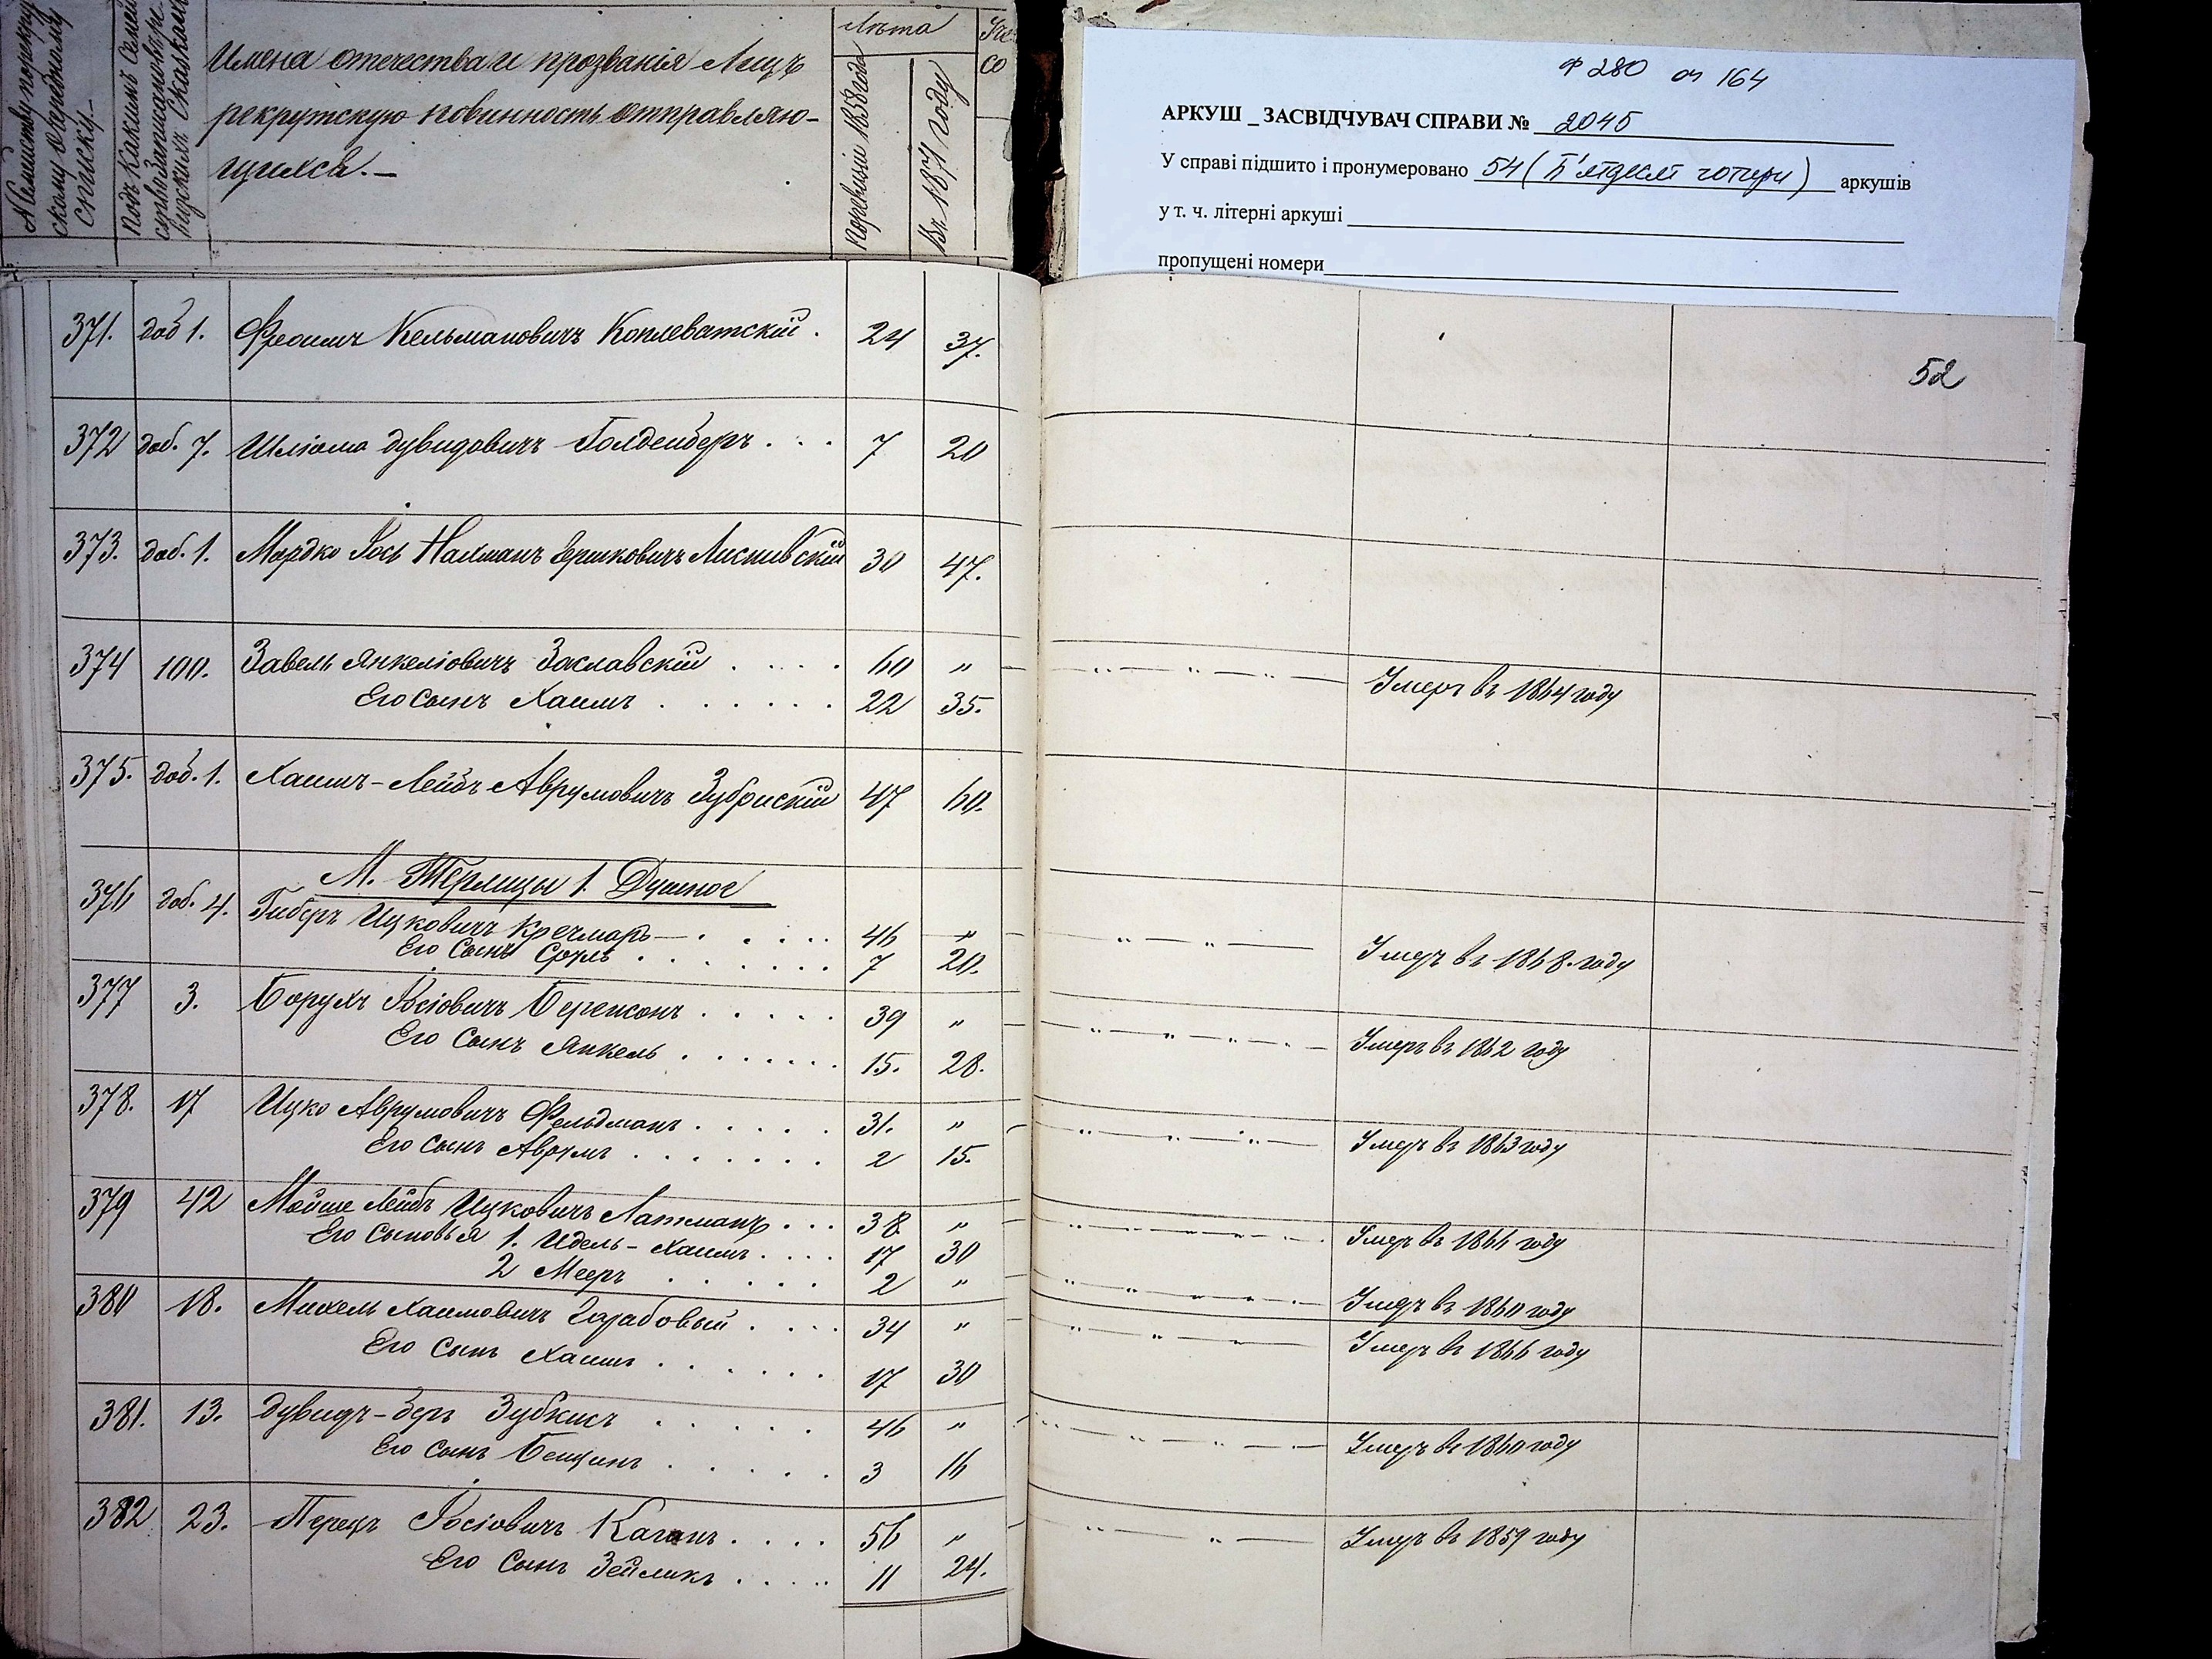 № по мѣстному рекрутскому очередному списку.—
Подъ какимъ семействомъ записаны въ ревизскихъ сказкахъ
Имена отечества и прозванія лицъ
рекрутскую повинность отправляю-
щихся.—
Лѣта
По ревизіи 1858 года
Въ 1871 году
ф 280 оп 164
АРКУШ _ ЗАСВІДЧУВАЧ СПРАВИ № 2045
У справі підшито і пронумеровано 54 (П'ятдесят чотири) аркушів
у т. ч. літерні аркуші
пропущені номери
52
371. доб 1. Фроимъ Кельмановичъ Коплеватскій . 24 37.
372 доб. 7. Шліома Дувидовичъ Голденберъ . . . 7 20
373. доб. 1. Мордко Іось Нахманъ Гершковичъ 30 47.
374 100. Завель Янкеліовичъ Заславскій . . . . 60 " Умеръ въ 1864 году
Его сынъ Хаимъ . . . . . . 22 35.
375. доб. 1. Хаимъ-Лейбъ Аврумовичъ Зубрискій 47 60.
М. Терлицы 1. Душное
376 доб. 4. Гиберъ Ицковичъ Кречмаръ — . . . . . 46 " Умеръ въ 1868. году
Его сынъ Сруль . . . . . . . 7 20.
377 3. Борухъ Іосіовичъ Беренсонъ . . . . . 39 " Умеръ въ 1862 году
Его сынъ Янкель . . . . . . . 15. 28.
378. 17 Ицко Аврумовичъ Фельдманъ . . . . . 31. " Умеръ въ 1863 году
Его сынъ Аврумъ . . . . . . . 2 15.
379 42 Мойше Лейбъ Ицковичъ Латманъ . . . 38. " Умеръ въ 1866 году
Его сыновья 1. Идель-Хаимъ . . . . 17 30
2 Мееръ . . . . . . 2 " Умеръ въ 1860 году
380 18. Михель Хаимовичъ Гарабовый . . . . 34 " Умеръ въ 1866 году
Его сынъ Хаимъ . . . . . . 17 30
381. 13. Дувидъ-беръ Зубкисъ . . . . . 46 " Умеръ въ 1860 году
Его сынъ Бенціинъ . . . . . 3 16
382 23. Перецъ Іосіовичъ Каганъ . . . . 56 " Умеръ въ 1859 году
Его сынъ Зейликъ . . . . . 11 24.